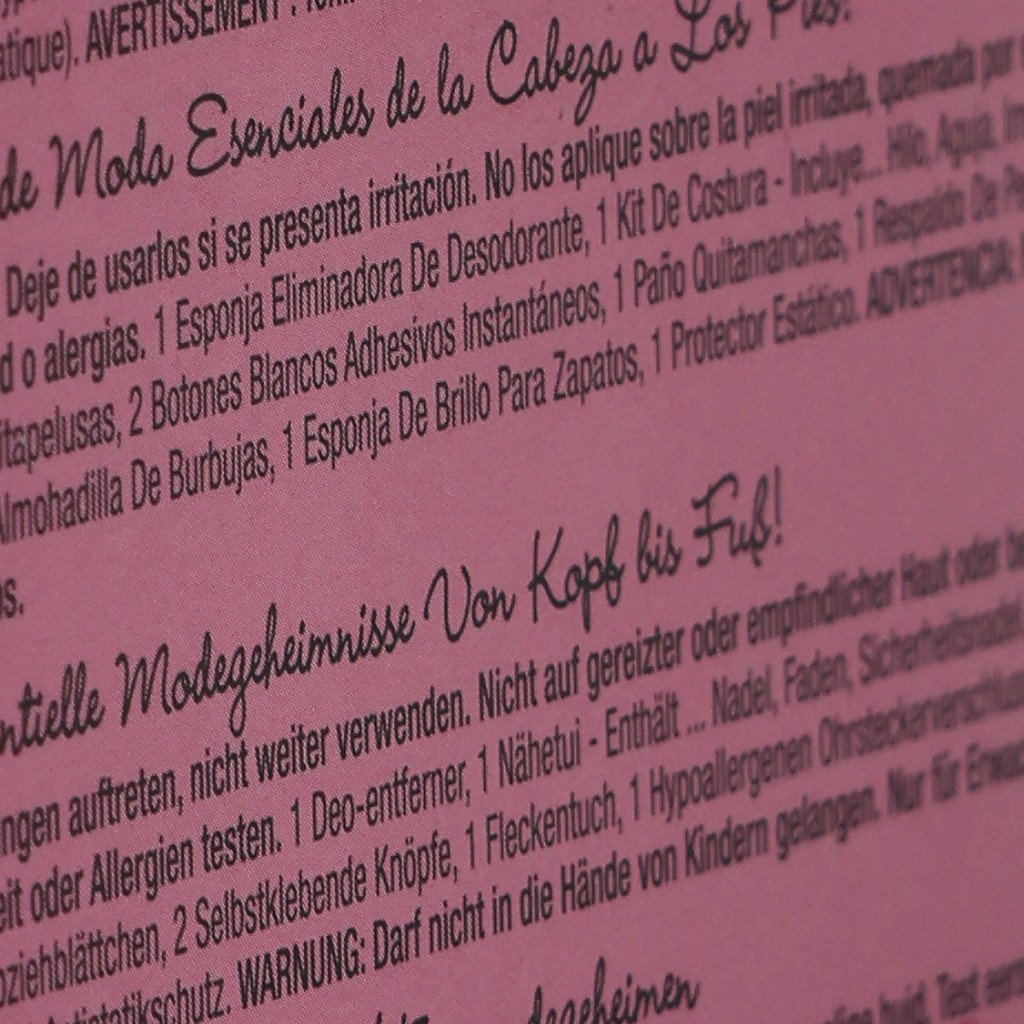 atique). AVERTISSEMENT :
de Moda Esenciales de la Cabeza a Los Pies!
Deje de usarlos si se presenta irritación. No los aplique sobre la piel irritada, quemada por
d o alergias. 1 Esponja Eliminadora De Desodorante, 1 Kit De Costura - Incluye... Hilo, Aguja,
itapelusas, 2 Botones Blancos Adhesivos Instantáneos, 1 Paño Quitamanchas, 1 Respaldo De
Almohadilla De Burbujas, 1 Esponja De Brillo Para Zapatos, 1 Protector Estático. ADVERTENCIA:
os.
ntielle Modegeheimnisse Von Kopf bis Fuß!
ngen auftreten, nicht weiter verwenden. Nicht auf gereizter oder empfindlicher Haut oder
eit oder Allergien testen. 1 Deo-entferner, 1 Nähetui - Enthält ... Nadel, Faden, Sicherheitsnadel,
oziehblättchen, 2 Selbstklebende Knöpfe, 1 Fleckentuch, 1 Hypoallergenen Ohrsteckerverschluss
Antistatikschutz. WARNUNG: Darf nicht in die Hände von Kindern gelangen. Nur für
degeheimen
huid. Test